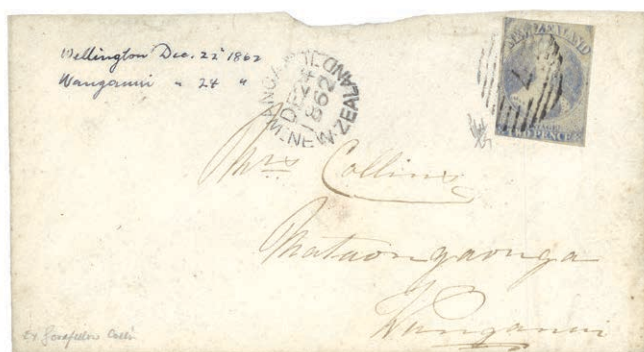 Wellington Dec. 22ⁿᵈ 1862
Wanganui " 24 "
WANGANUI
DE 24
1862
NEW·ZEALAND
NEW ZEALAND
TWO PENCE
Mrs Collins
Mataongaonga
Wanganui
ex